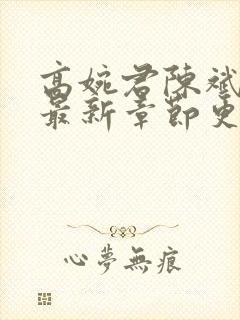 高婉君陈斌
最新章節更
心夢無痕